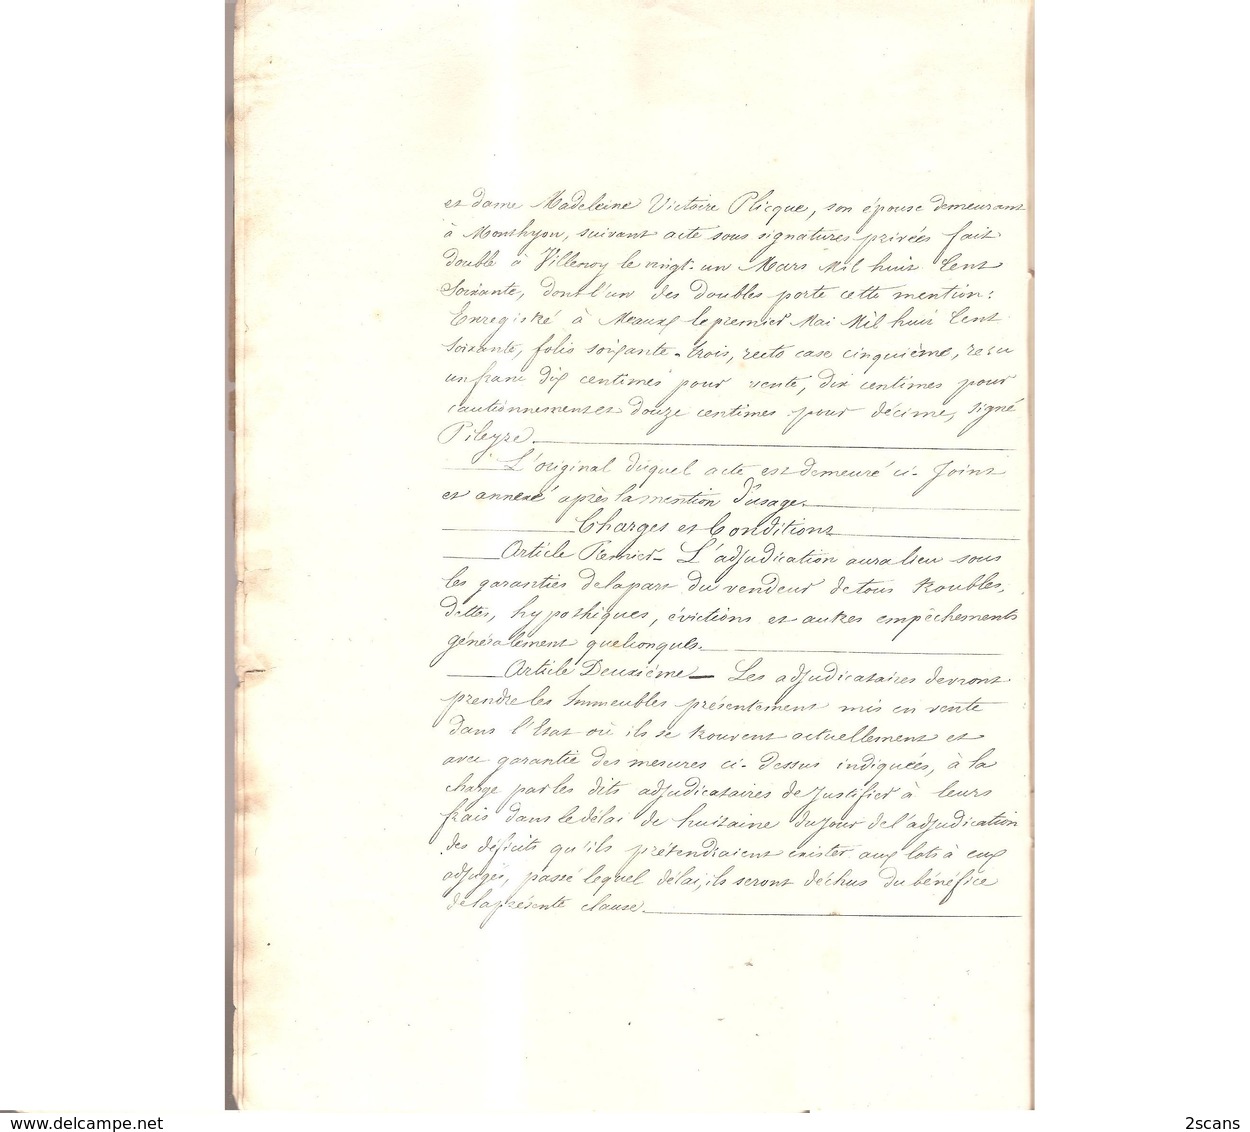 et dame Madeleine Victoire Plicque, son épouse demeurant
à Monthyon, suivant acte sous signatures privées fait
double à Villenoy le vingt-un Mars Mil huit Cent
Soixante, dont l'un des doubles porte cette mention:
Enregistré à Meaux le premier Mai Mil huit Cent
soixante, folio soixante-trois, recto case cinquième, reçu
un franc dix centimes pour vente, dix centimes pour
cautionnement et douze centimes pour décime, signé
Pileyre.
L'original duquel acte est demeuré ci-Joint
et annexé après la mention d'usage.
Charges et Conditions
Article Premier_ L'adjudication aura lieu sous
les garanties de la part du vendeur de tous troubles,
dettes, hypothèques, évictions et autres empêchements
généralement quelconques.
Article Deuxième_ Les adjudicataires devront
prendre les Immeubles présentement mis en vente
dans l'état où ils se trouvent actuellement et
avec garantie des mesures ci-dessus indiquées, à la
charge par les dits adjudicataires de Justifier à leurs
frais dans le délai de huitaine du Jour de l'adjudication
des déficits qu'ils prétendraient exister aux lots à eux
adjugés, passé lequel délai, ils seront déchus du bénéfice
de la présente clause.
www.delcampe.net
2scans